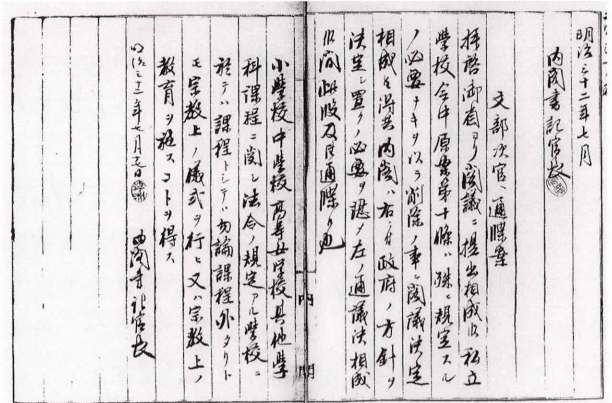 明治三十二年七月
内閣書記官長
文部次官ヘ通牒案
拝啓御省ヨリ閣議ニ提出相成候私立
学校令中原案第十條ハ殊ニ規定スル
ノ必要ナキヲ以テ削除ノ事ニ閣議決定
相成候得共内閣ハ右ニ付政府ノ方針ヲ
決定シ置クノ必要ヲ認メ左ノ通議決相成
候間此段及通牒候也
小學校中學校高等女学校其他學
科課程ニ関シ法令ノ規定アル學校ニ
於テハ課程トシテハ勿論課程外タリト
モ宗教上ノ儀式ヲ行ヒ又ハ宗教上ノ
教育ヲ施スコトヲ得ス
明治三十二年七月 日
内閣書記官長
内閣